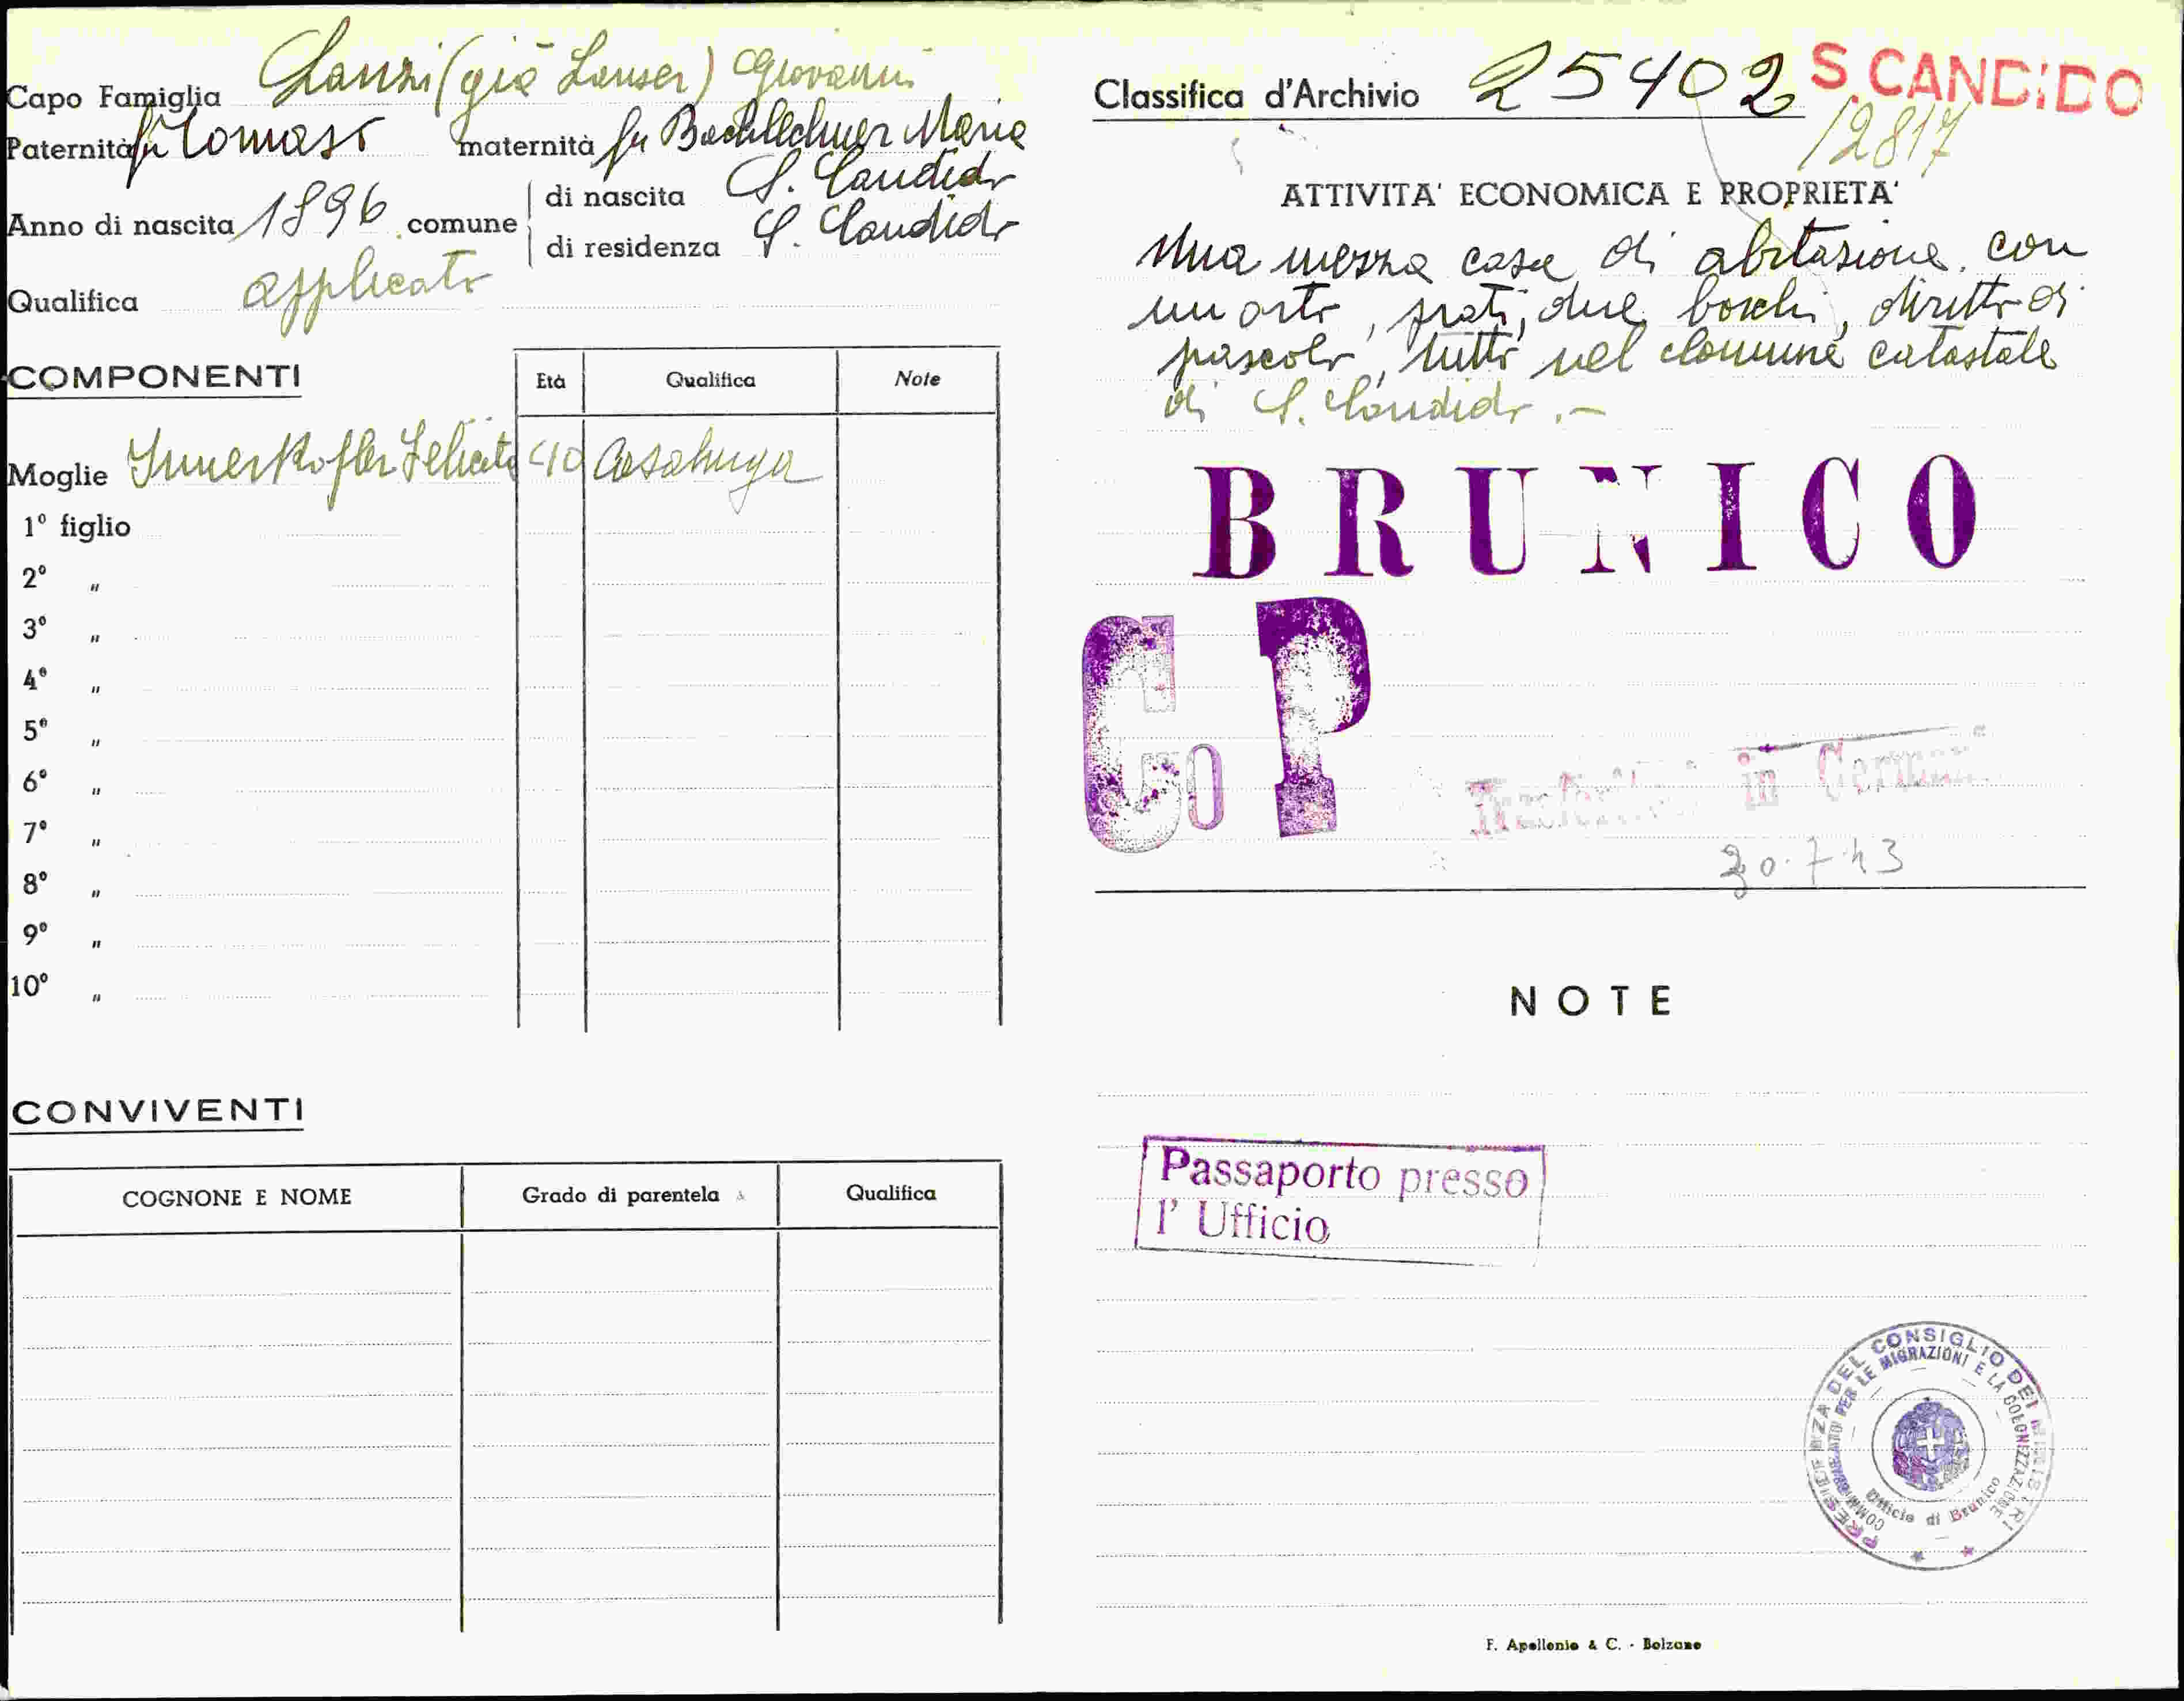 Capo Famiglia Lanzi (già Lanser) Giovanni
Paternità fu Tomaso maternità fu Bachlechner Maria
Anno di nascita 1896 comune
di nascita S. Candido
di residenza S. Candido
Qualifica applicato
COMPONENTI
Età Qualifica Note
Moglie Innerkofler Felicita 40 Casalinga
1º figlio
2º "
3º "
4º "
5º "
6º "
7º "
8º "
9º "
10º "
CONVIVENTI
COGNONE E NOME Grado di parentela Qualifica
Classifica d'Archivio 25402 S. CANDIDO
12817
ATTIVITA' ECONOMICA E PROPRIETA'
Una mezza casa di abitazione, con
un orto, prati, due boschi, diritto di
pascolo, tutto nel Comune catastale
di S. Candido.-
BRUNICO
Go P
in
20.7.43
NOTE
Passaporto presso
l' Ufficio
PRESIDENZA DEL CONSIGLIO DEI MINISTRI
COMMISSARIATO PER LE MIGRAZIONI E LA COLONIZZAZIONE
Ufficio di Brunico
F. Apollonio & C. - Bolzano